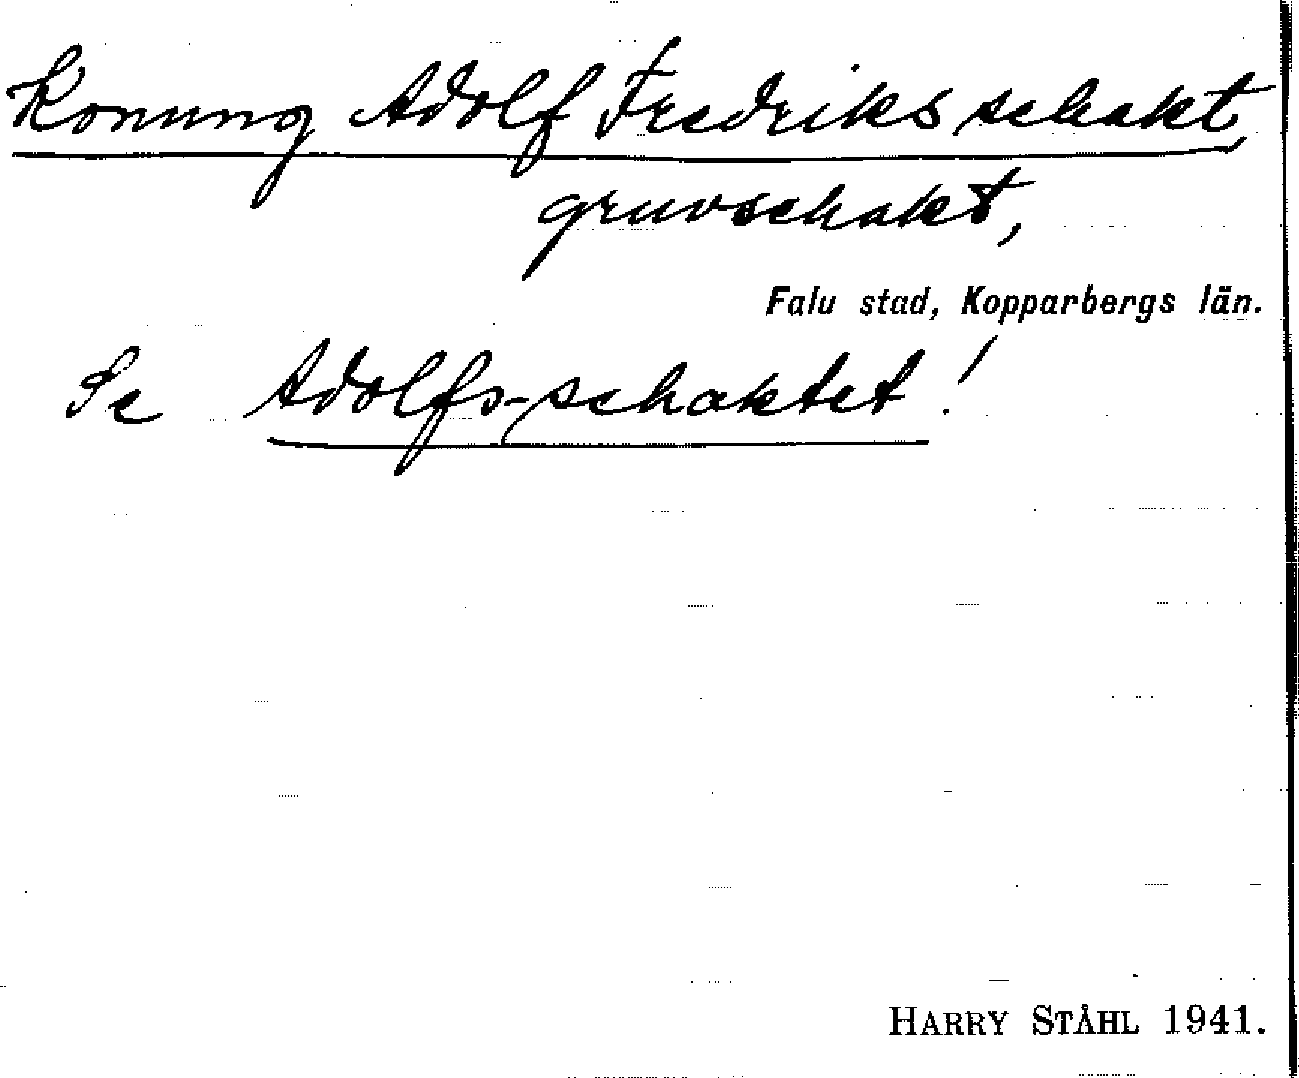 Konung Adolf Fredriks schakt,
gruvschakt,
Falu stad, Kopparbergs län.
Se Adolfs-schaktet!
HARRY STÅHL 1941.